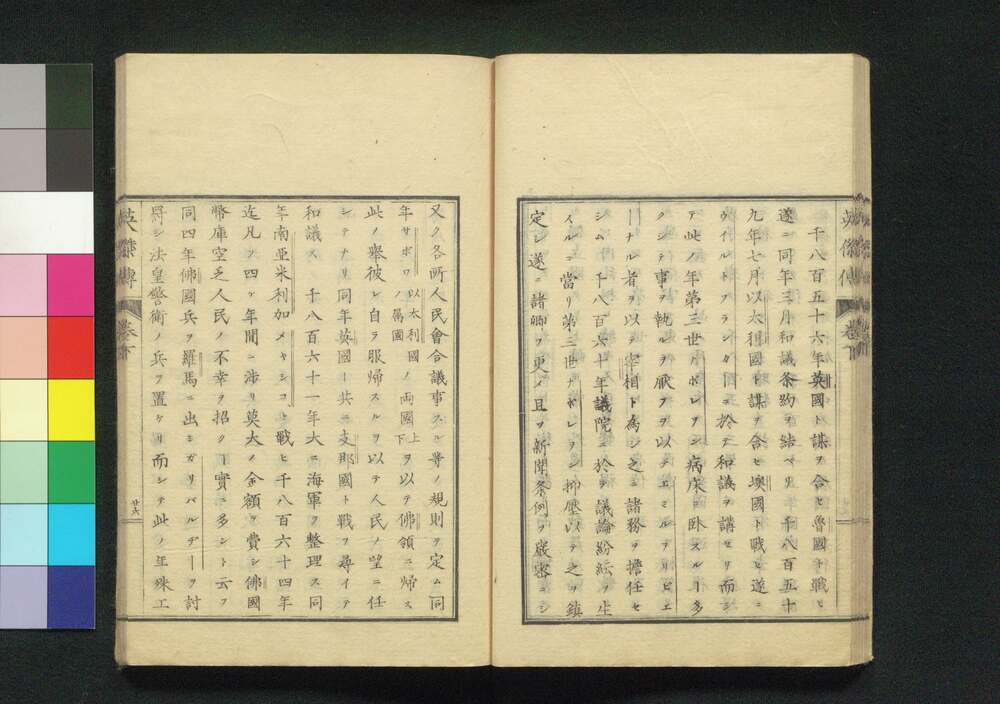 千八百五十六年英國ト謀ヲ合セ魯國ト戰ヒ
遂ニ同年三月和議条約ヲ結ベリ 千八百五十
九年七月以太利國ト謀ヲ合セ墺國ト戰ヒ遂ニ
ウイルトフランカーニ於テ和議ヲ講セリ而シ
テ此ノ年第三世ナポレヲン病床ニ臥スルー多
クシテ事ヲ執ルヲ厭フヲ以テエミルヲリビエ
ートナル者ヲ以テ宰相ト為シ之ニ諸務ヲ擔任セ
シム 千八百六十年議院ニ於テ議論紛紜ヲ生
スルニ當リ第三世ナポレヲン抑壓以テ之ヲ鎮
定シ遂ニ諸卿ヲ更メ且ツ新聞条例ヲ嚴密ニシ
又タ各所人民會合議事スル等ノ規則ヲ定ム同
年サボワ以太利國ノ上ノ属國両國下ヲ以テ佛領ニ帰ス
此ノ舉彼レ自ラ服帰スルヲ以テ人民ノ望ニ任
シテナリ同年英國ト共ニ支那國ト戰フ尋イテ
和議ス 千八百六十一年大ニ海軍ヲ整理ス同
年南亜米利加メキシコト戰ヒ千八百六十四年
迄凡ソ四ヶ年間ニ渉リ莫大ノ金額ヲ費シ佛國
幣庫空乏人民ノ不幸ヲ招クー實ニ多シト云フ
同四年佛國兵ヲ羅馬ニ出シガリバルヂーヲ討
将シ法皇警衛ノ兵ヲ置ケリ而シテ此ノ年殊工
英傑傳 卷下
廿六